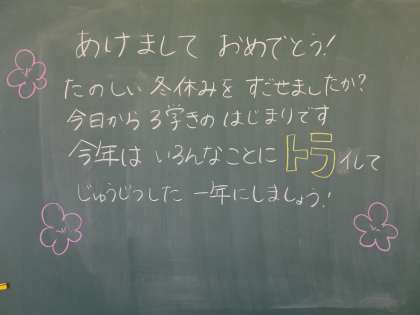 あけまして おめでとう!
たのしい 冬休みを すごせましたか?
今日から 3学きの はじまりです
今年は いろんなことに トライして
じゅうじつした 一年にしましょう!